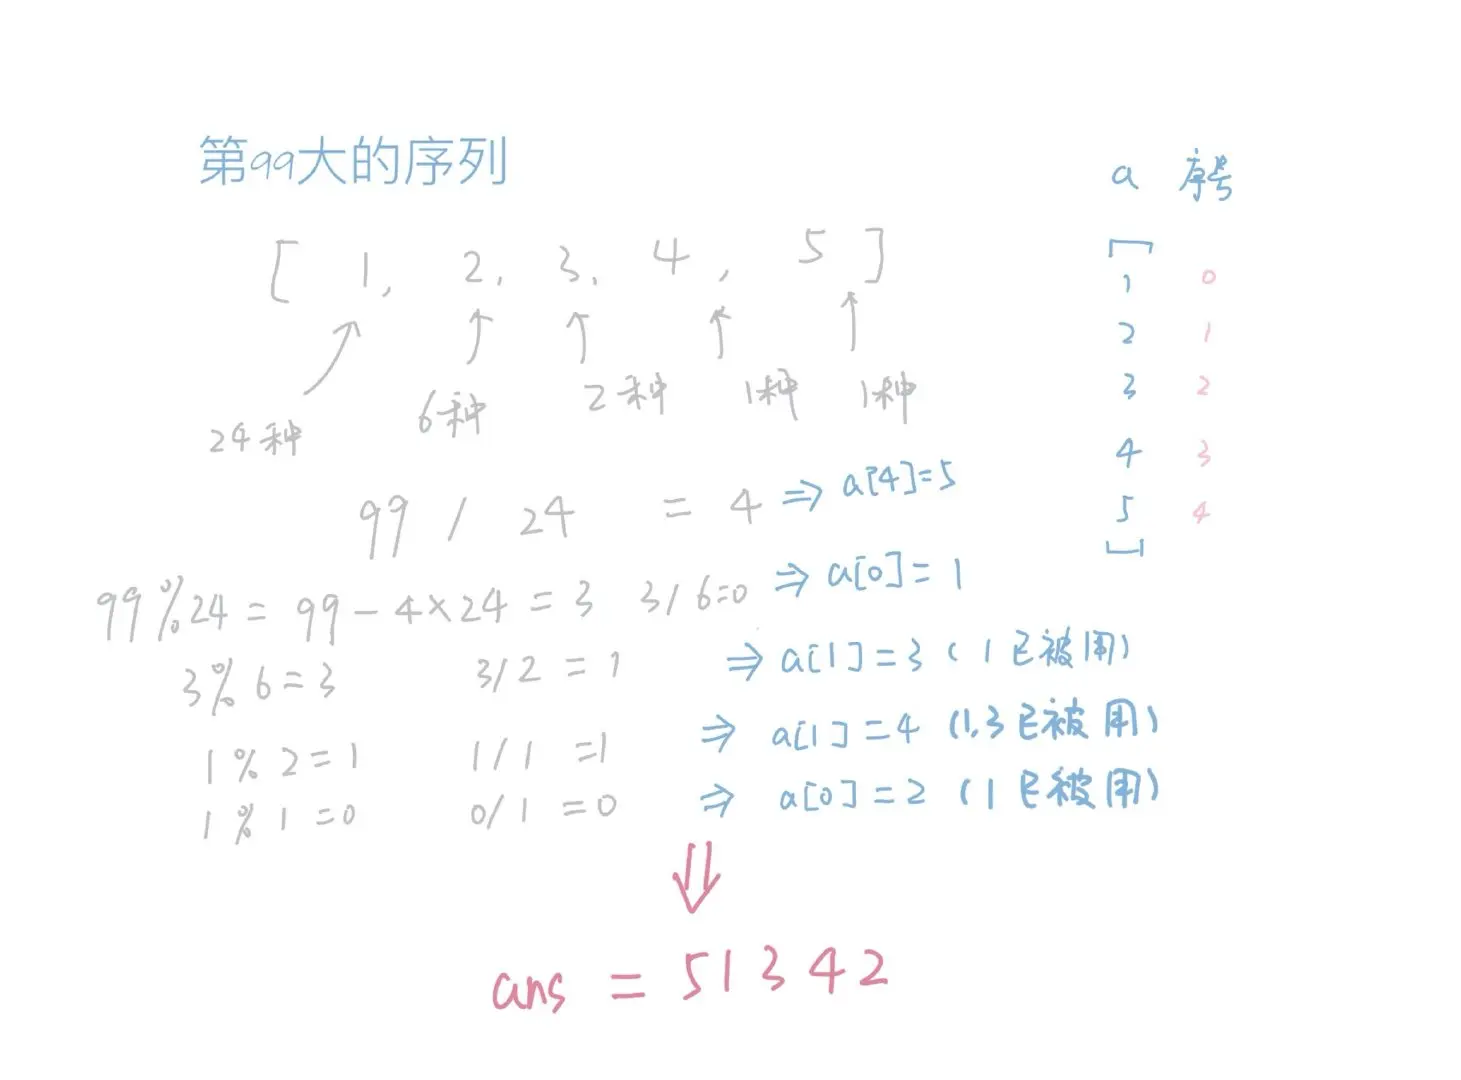 第99大的序列
a 序号
[ 1, 2, 3, 4, 5 ]
24种 6种 2种 1种 1种
1 0
2 1
3 2
4 3
5 4
99 / 24 = 4 ⇒ a[4]=5
99%24 = 99-4×24 = 3 3/6=0 ⇒ a[0]=1
3%6=3 3/2=1 ⇒ a[1]=3 (1已被用)
1%2=1 1/1=1 ⇒ a[1]=4 (1,3已被用)
1%1=0 0/1=0 ⇒ a[0]=2 (1已被用)
⇓
ans = 51342